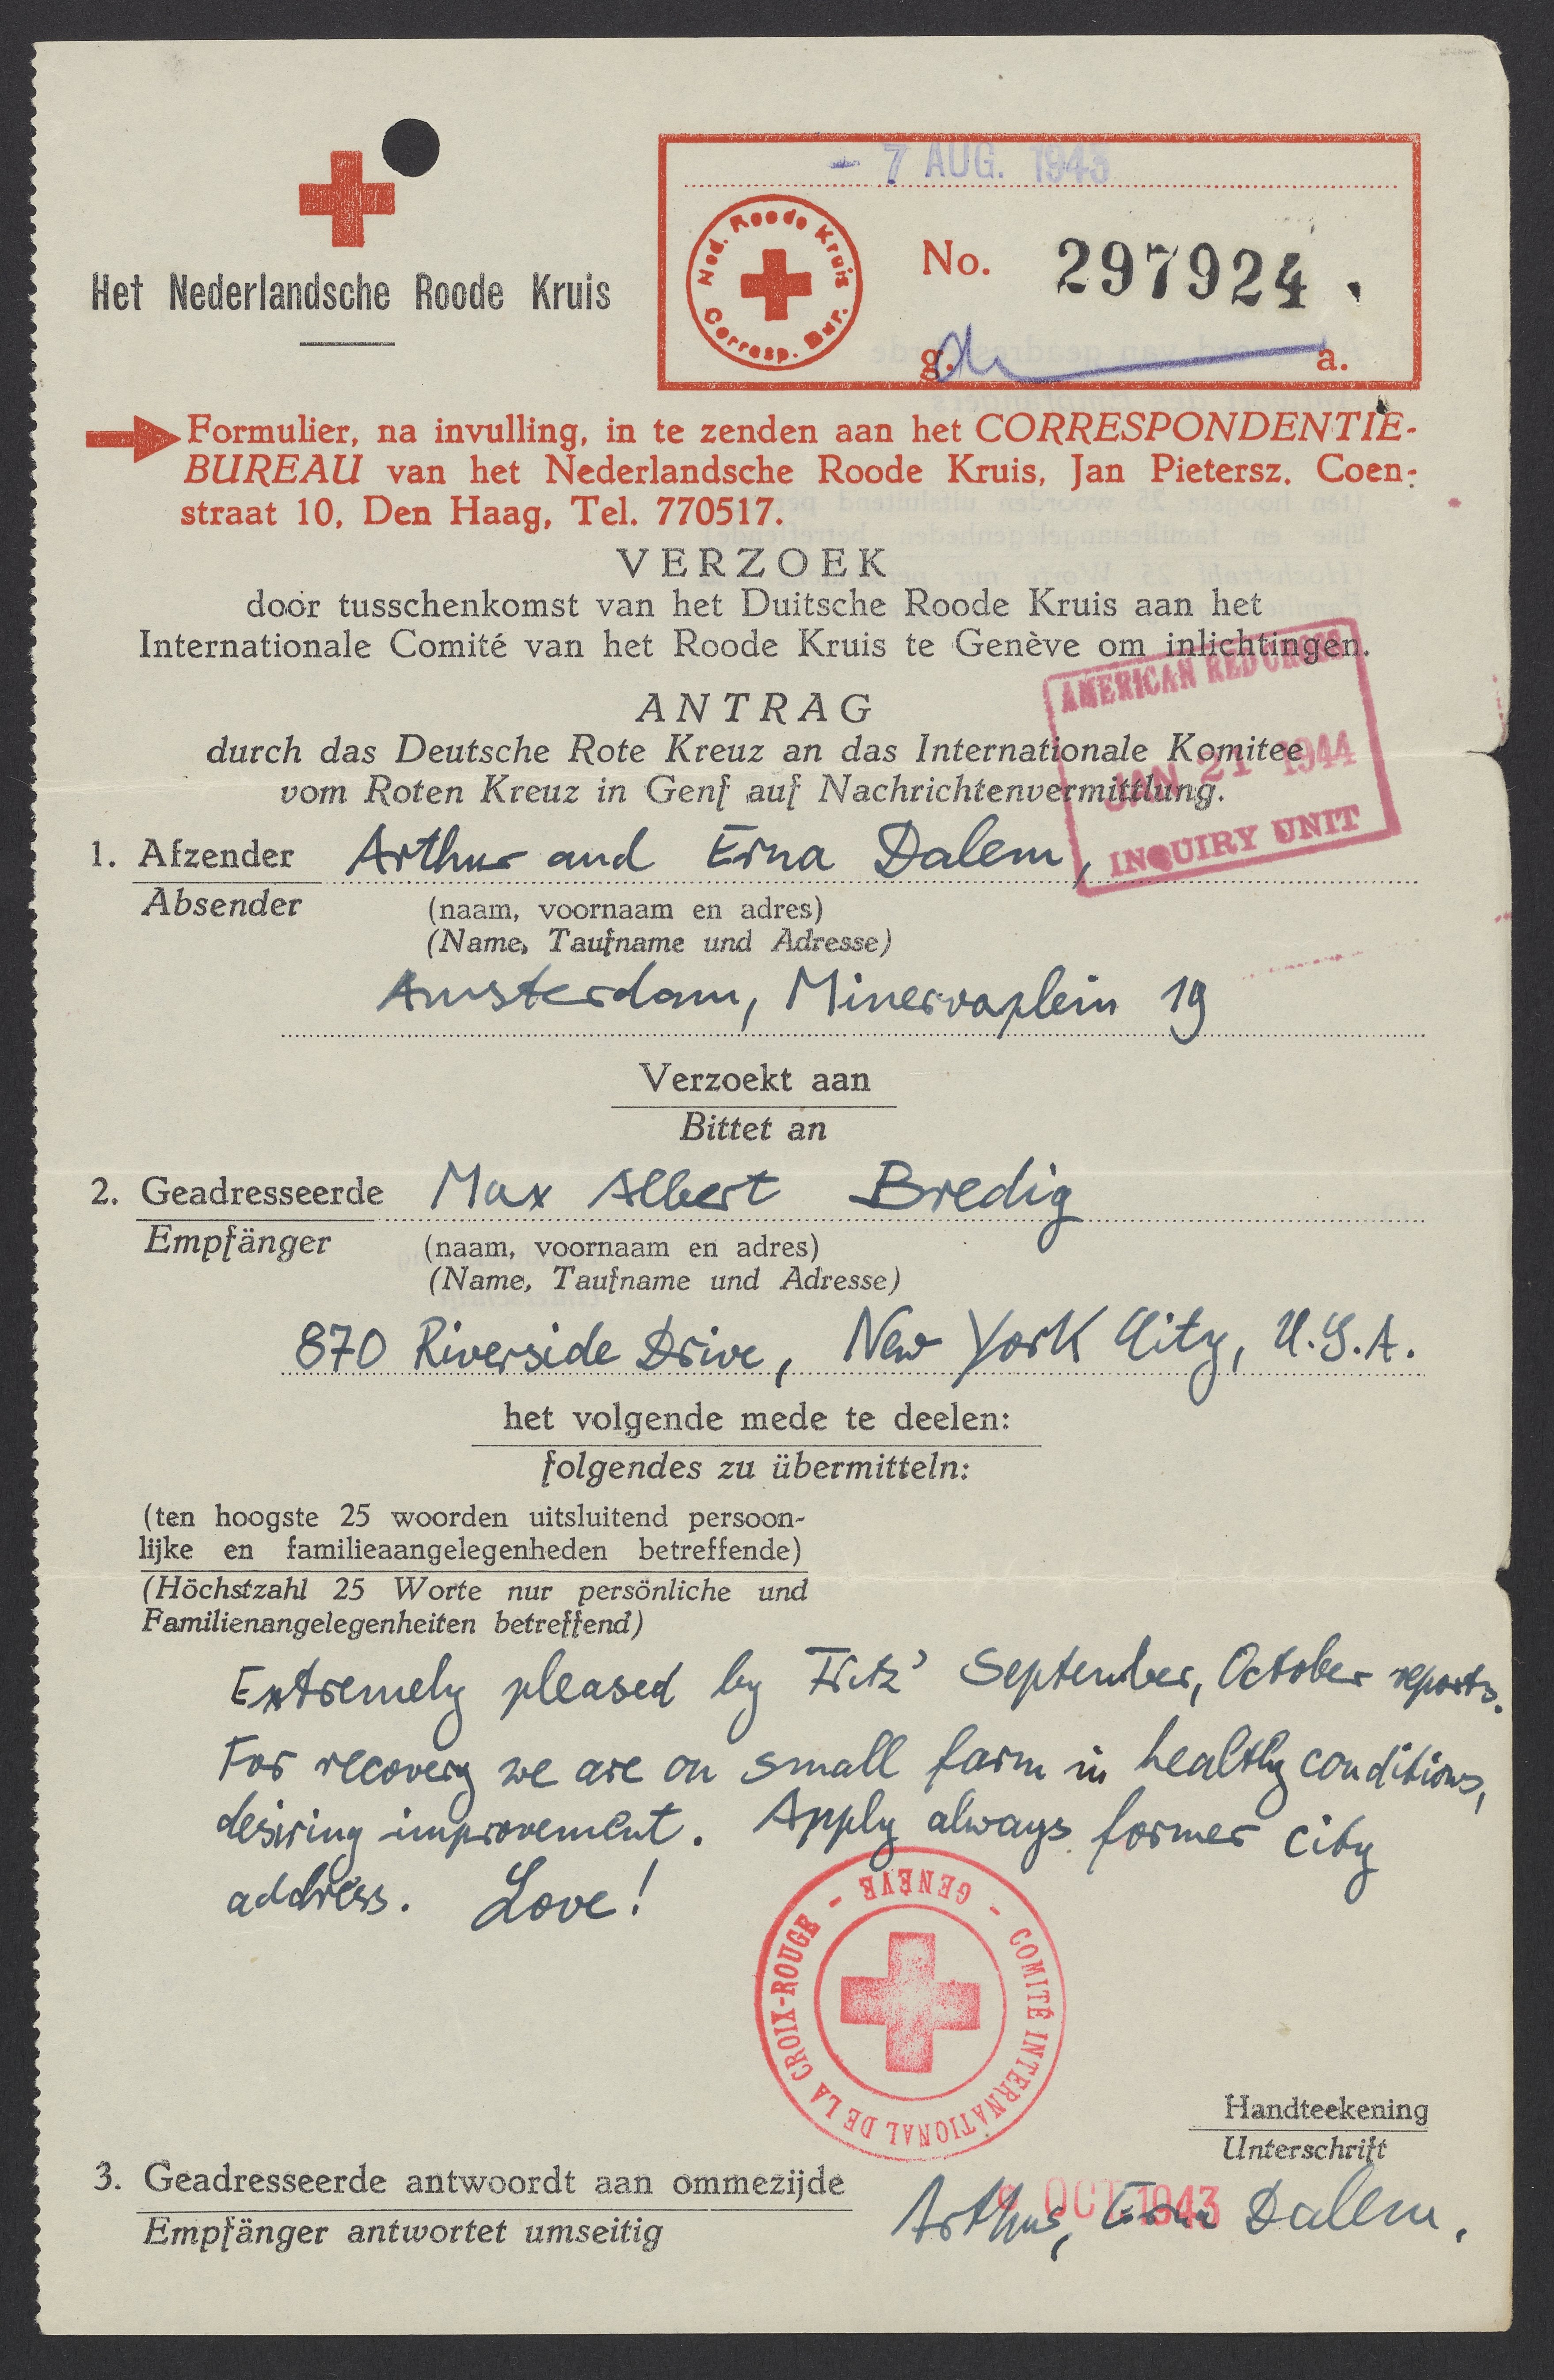 - 7 AUG. 1943
Het Nederlandsche Roode Kruis
Ned. Roode Kruis
Corresp. Bur.
No. 297924
g. a.
Formulier, na invulling, in te zenden aan het CORRESPONDENTIE-
BUREAU van het Nederlandsche Roode Kruis, Jan Pietersz. Coen-
straat 10, Den Haag, Tel. 770517.
VERZOEK
door tusschenkomst van het Duitsche Roode Kruis aan het
Internationale Comité van het Roode Kruis te Genève om inlichtingen.
AMERICAN RED CROSS
JAN 21 1944
INQUIRY UNIT
ANTRAG
durch das Deutsche Rote Kreuz an das Internationale Komitee
vom Roten Kreuz in Genf auf Nachrichtenvermittlung.
1. Afzender Arthur and Erna Dalem,
Absender
(naam, voornaam en adres)
(Name, Taufname und Adresse)
Amsterdam, Minervaplein 19
Verzoekt aan
Bittet an
2. Geadresseerde Max Albert Bredig
Empfänger
(naam, voornaam en adres)
(Name, Taufname und Adresse)
870 Riverside Drive, New York City, U.S.A.
het volgende mede te deelen:
folgendes zu übermitteln:
(ten hoogste 25 woorden uitsluitend persoon-
lijke en familieaangelegenheden betreffende)
(Höchstzahl 25 Worte nur persönliche und
Familienangelegenheiten betreffend)
Extremely pleased by Fritz' September, October reports.
For recovery we are on small farm in healthy conditions,
desiring improvement. Apply always former city
address. Love!
COMITÉ INTERNATIONAL DE LA CROIX-ROUGE - GENÈVE -
Handteekening
Unterschrift
3. Geadresseerde antwoordt aan ommezijde
Empfänger antwortet umseitig
OCT 1943
Arthur, Erna Dalem.